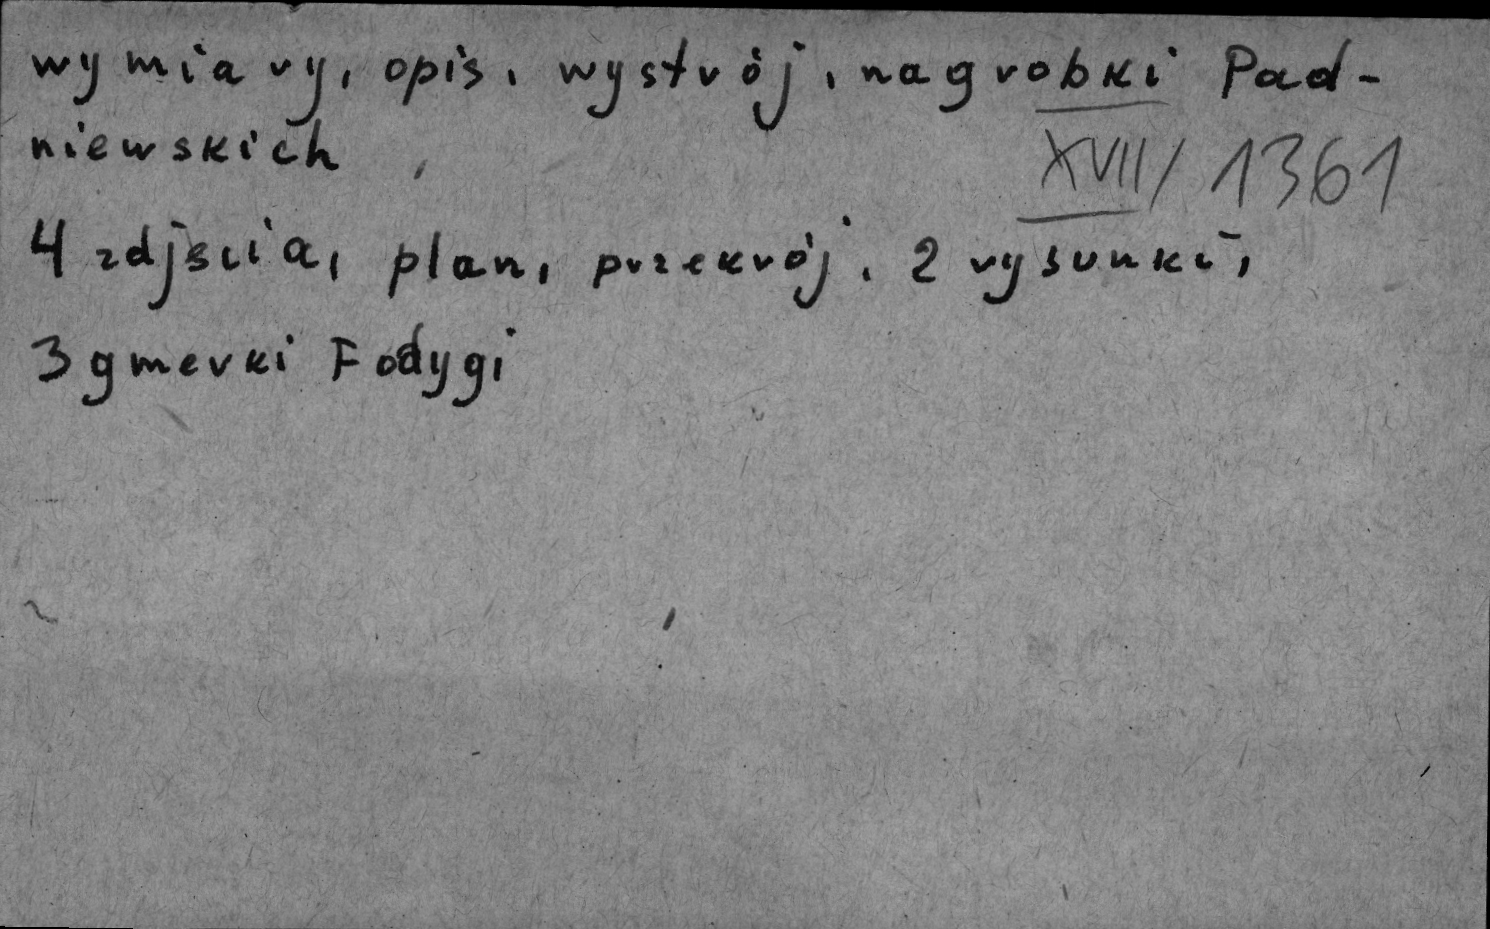 wymiary, opis, wystrój, nagrobki Pad-
niewskich
XVII/1361
4 zdjscia, plan, przekrój, 2 rysunki,
3 gmerki Fodygi